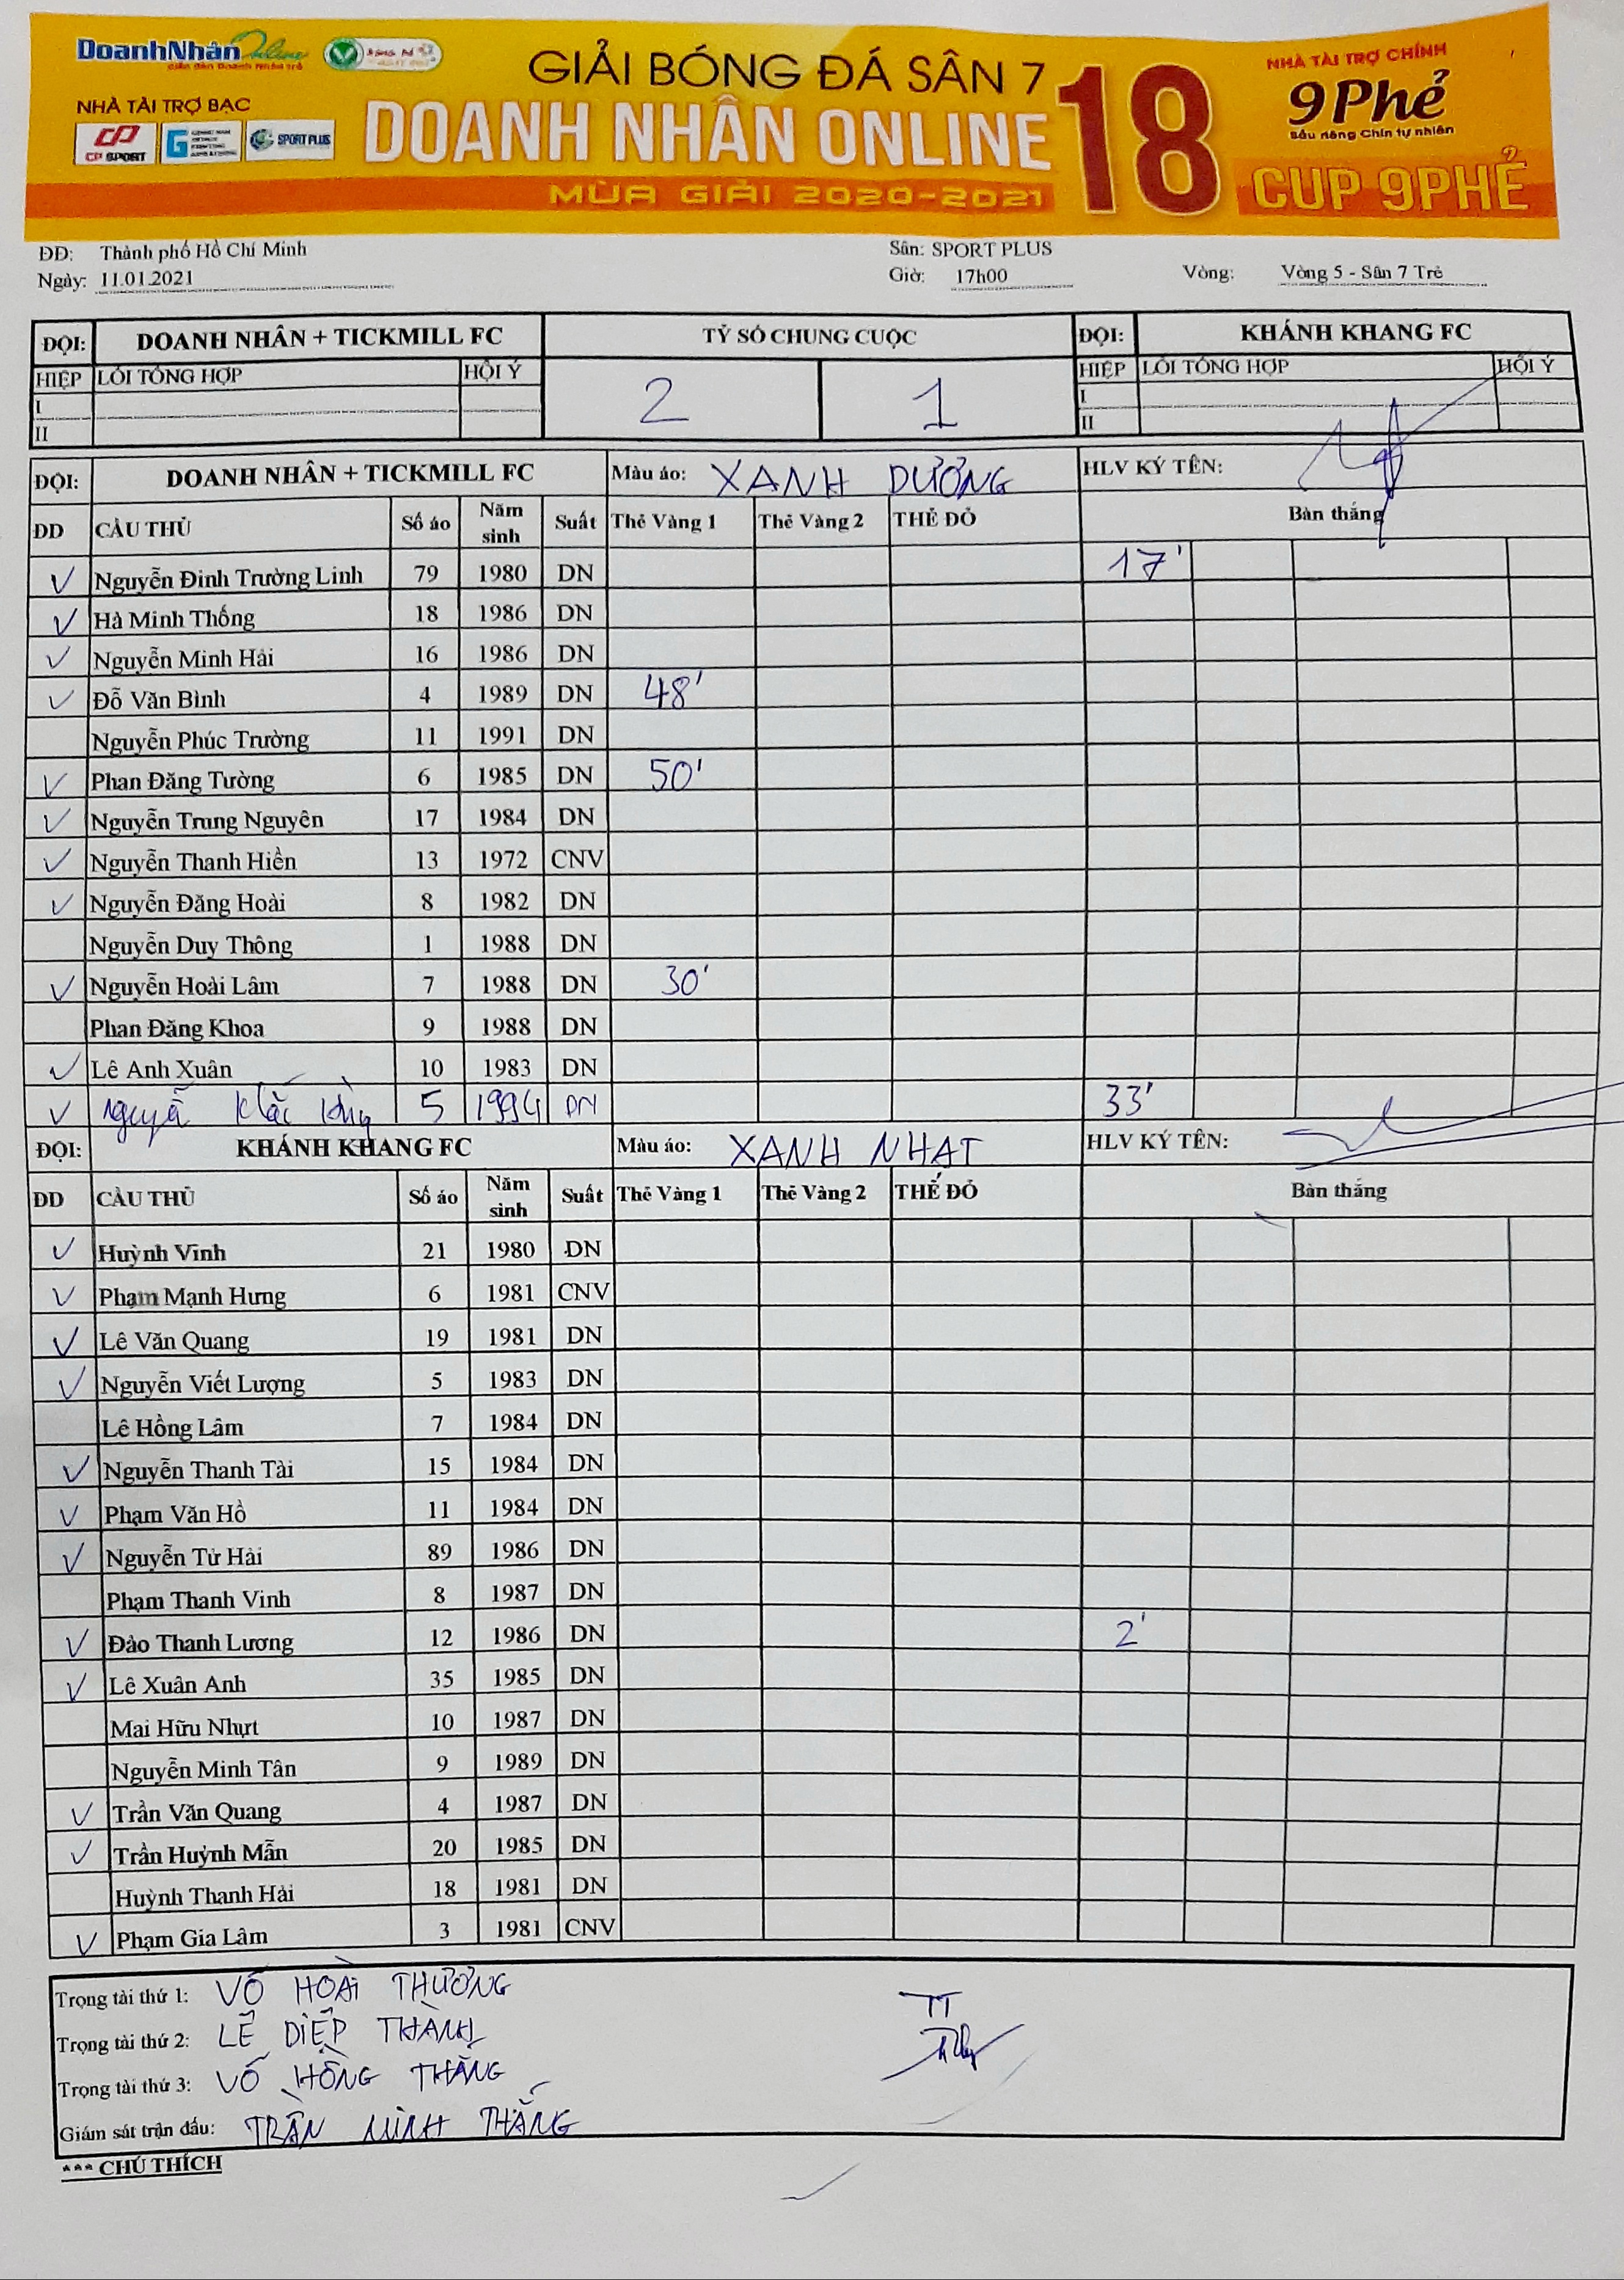 DoanhNhân Online
diễn đàn Doanh Nhân trẻ
NHÀ TÀI TRỢ BẠC
CP SPORT
SPORT PLUS
GIẢI BÓNG ĐÁ SÂN 7
DOANH NHÂN ONLINE 18
MÙA GIẢI 2020-2021
NHÀ TÀI TRỢ CHÍNH
9Phẻ
Sầu riêng Chín tự nhiên
CUP 9PHẺ
ĐĐ: Thành phố Hồ Chí Minh Sân: SPORT PLUS
Ngày: 11.01.2021 Giờ: 17h00 Vòng: Vòng 5 - Sân 7 Trẻ
ĐỘI: DOANH NHÂN + TICKMILL FC TỶ SỐ CHUNG CUỘC ĐỘI: KHÁNH KHANG FC
HIỆP LỖI TỔNG HỢP HỘI Ý 2 1 HIỆP LỖI TỔNG HỢP HỘI Ý
I I
II II
ĐỘI: DOANH NHÂN + TICKMILL FC Màu áo: XANH DƯƠNG HLV KÝ TÊN:
DD CẦU THỦ Số áo Năm sinh Suất Thẻ Vàng 1 Thẻ Vàng 2 THẺ ĐỎ Bàn thắng
V Nguyễn Đình Trường Linh 79 1980 DN 17'
V Hà Minh Thống 18 1986 DN
V Nguyễn Minh Hải 16 1986 DN
V Đỗ Văn Bình 4 1989 DN 48'
Nguyễn Phúc Trường 11 1991 DN
V Phan Đăng Tường 6 1985 DN 50'
V Nguyễn Trung Nguyên 17 1984 DN
V Nguyễn Thanh Hiền 13 1972 CNV
V Nguyễn Đăng Hoài 8 1982 DN
Nguyễn Duy Thông 1 1988 DN
V Nguyễn Hoài Lâm 7 1988 DN 30'
Phan Đăng Khoa 9 1988 DN
V Lê Anh Xuân 10 1983 DN
V Nguyễn Khắc 5 1994 DN 33'
ĐỘI: KHÁNH KHANG FC Màu áo: XANH NHẠT HLV KÝ TÊN:
DD CẦU THỦ Số áo Năm sinh Suất Thẻ Vàng 1 Thẻ Vàng 2 THẺ ĐỎ Bàn thắng
V Huỳnh Vinh 21 1980 DN
V Phạm Mạnh Hưng 6 1981 CNV
V Lê Văn Quang 19 1981 DN
V Nguyễn Viết Lượng 5 1983 DN
Lê Hồng Lâm 7 1984 DN
V Nguyễn Thanh Tài 15 1984 DN
V Phạm Văn Hồ 11 1984 DN
V Nguyễn Tử Hải 89 1986 DN
Phạm Thanh Vinh 8 1987 DN
V Đào Thanh Lương 12 1986 DN 2'
V Lê Xuân Anh 35 1985 DN
Mai Hữu Nhựt 10 1987 DN
Nguyễn Minh Tân 9 1989 DN
V Trần Văn Quang 4 1987 DN
V Trần Huỳnh Mẫn 20 1985 DN
Huỳnh Thanh Hải 18 1981 DN
V Phạm Gia Lâm 3 1981 CNV
Trọng tài thứ 1: VÕ HOÀI THƯƠNG
Trọng tài thứ 2: LÊ DIỆP THÀNH
Trọng tài thứ 3: VÕ HỒNG THẮNG
Giám sát trận đấu: TRẦN MINH THẮNG
TT
*** CHÚ THÍCH